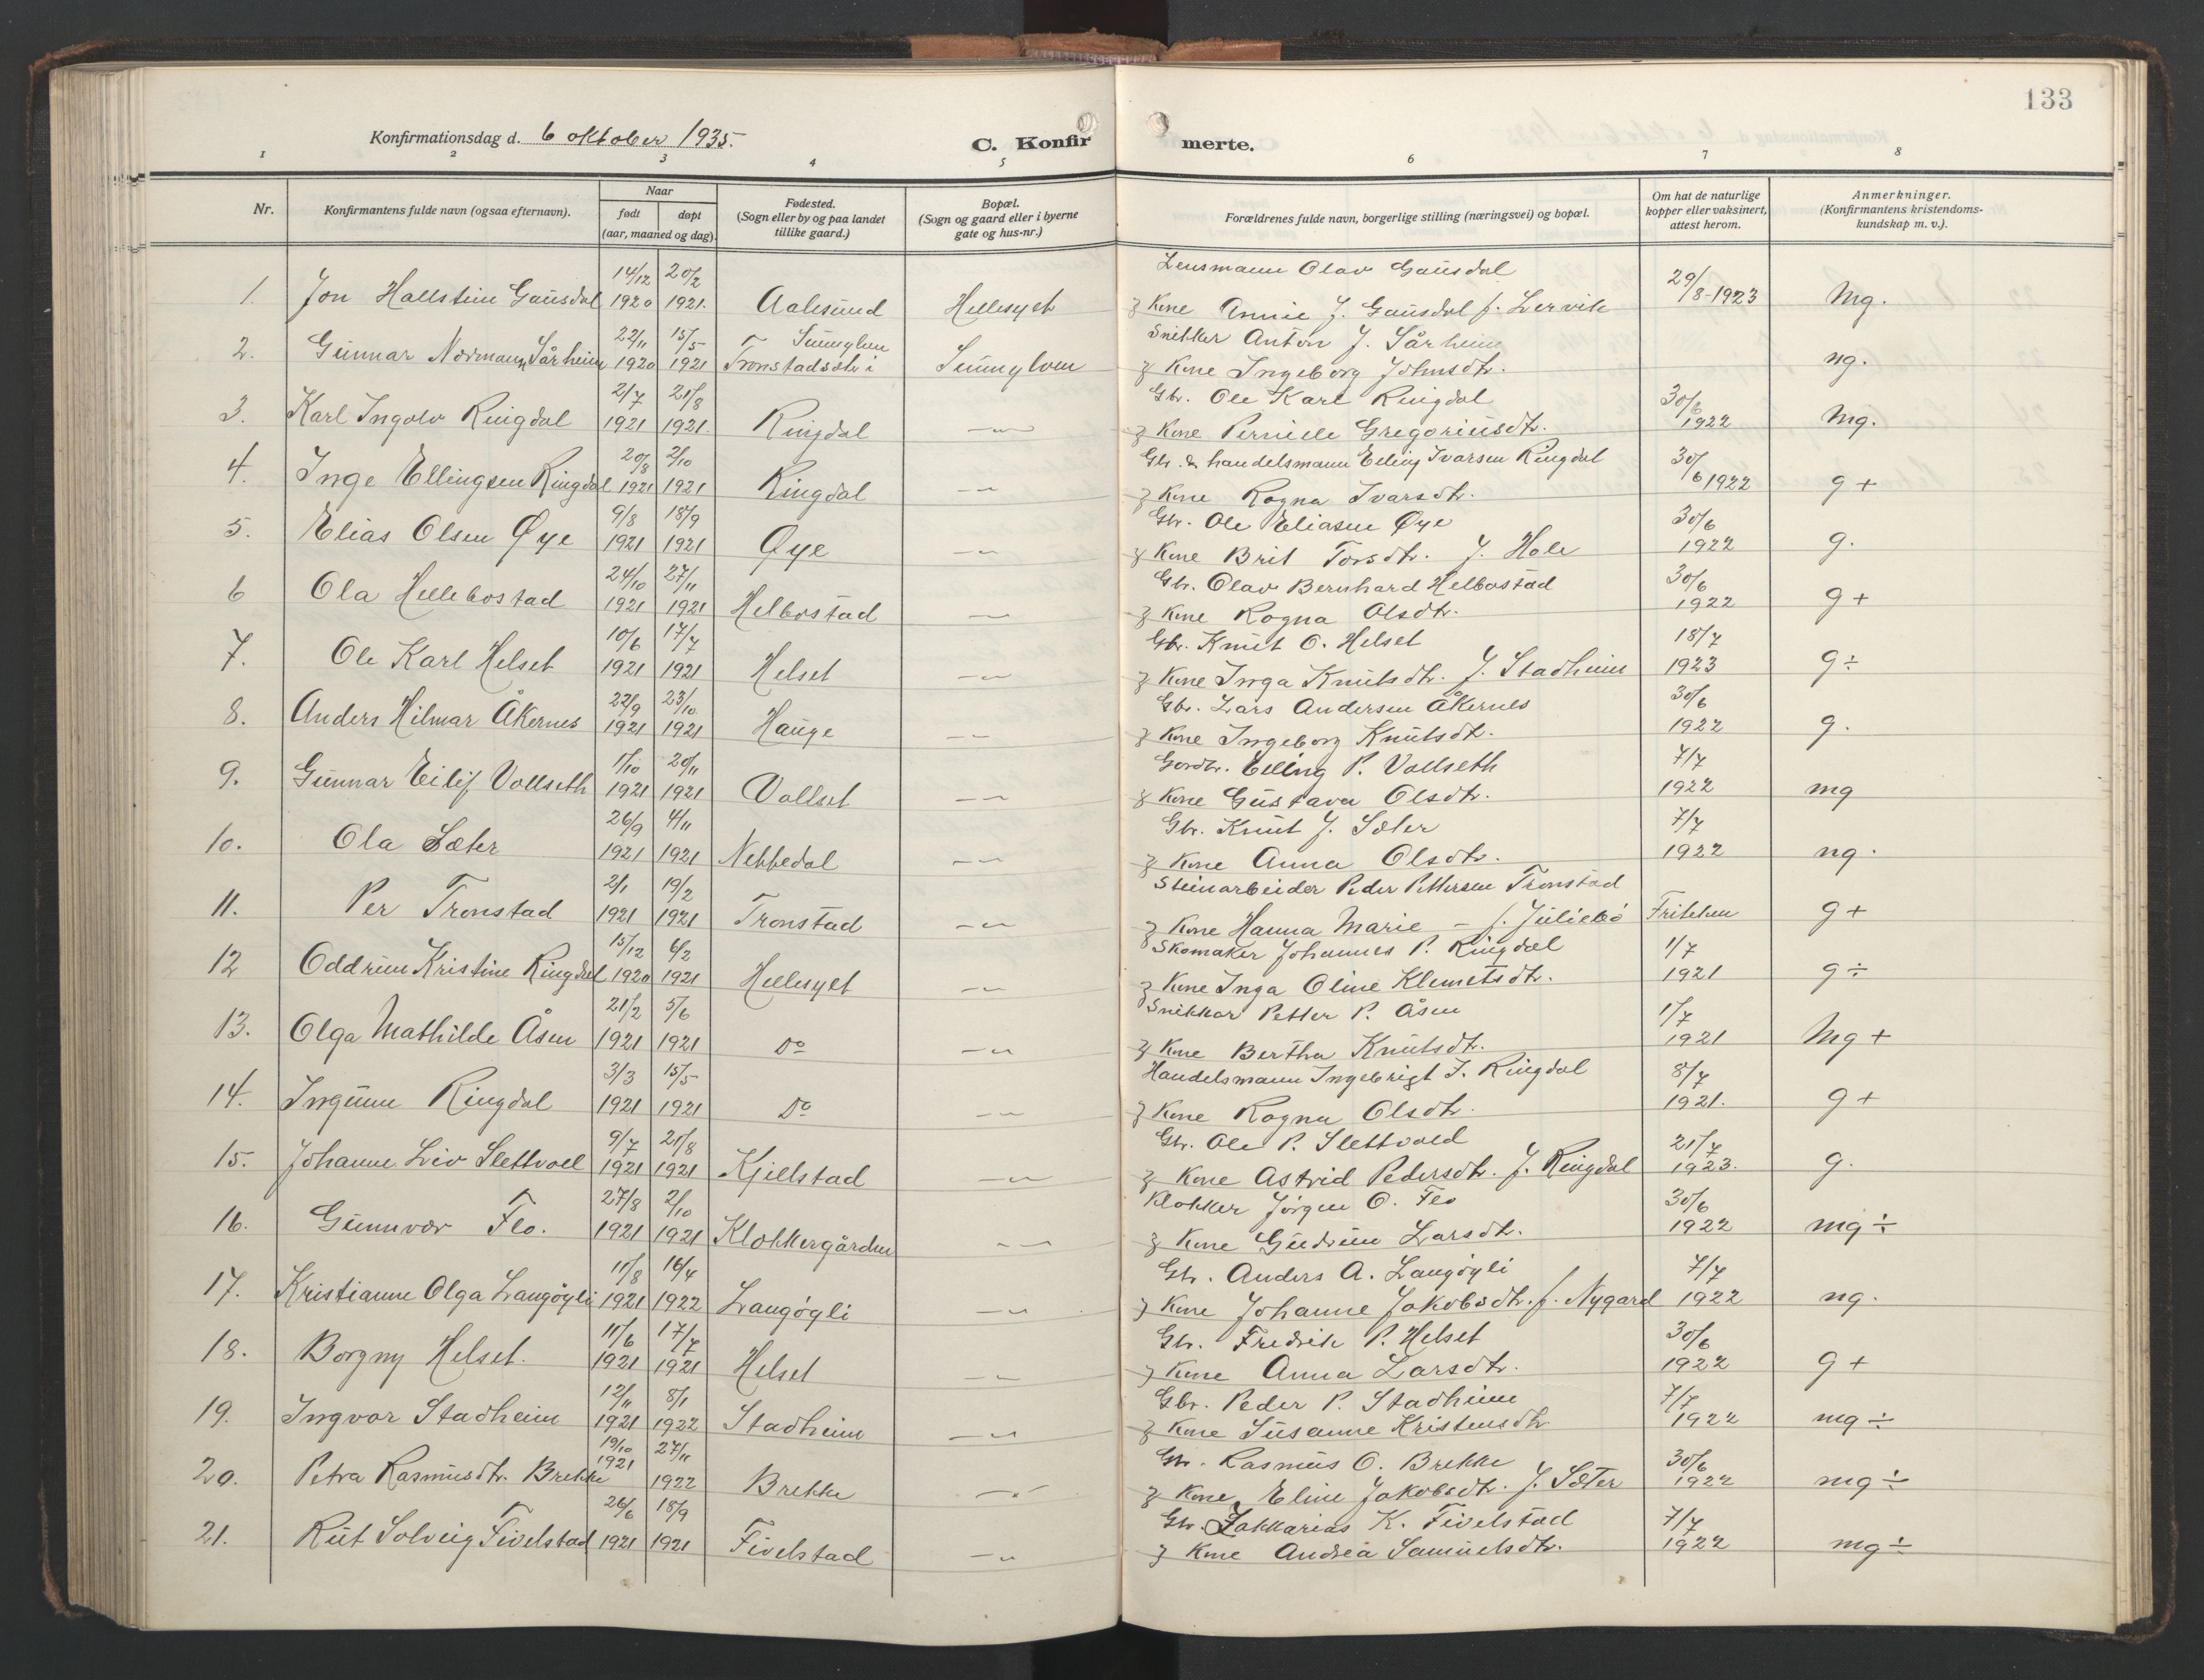 133
Konfirmationsdag d. 6 oktober 1935.
C. Konfirmerte.
1 2 3 4 5 6 7 8
Nr. Konfirmantens fulde navn (ogsaa efternavn). Naar født døpt (aar, maaned og dag). Fødested. (Sogn eller by og paa landet tillike gaard.) Bopæl. (Sogn og gaard eller i byerne gate og hus-nr.) Forældrenes fulde navn, borgerlige stilling (næringsvei) og bopæl. Om hat de naturlige kopper eller vaksinert, attest herom. Anmerkninger. (Konfirmantens kristendomskundskap m. v.).
14/12 20/2 Lensmann Olav Gausdal 29/8-1923
1. Jon Hallstein Gausdal 1920 1921. Aalesund Hellesylt & Kone Annie J. Gausdal f. Lervik Mg.
22/11 15/5 Sunnylven Snikker Anton J. Sårheim
2. Gunnar Normann Sårheim 1920 1921 Tronstadsætr i Sunnylven & Kone Ingeborg Johnsdtr. ng.
2/7 21/8 Gbr. Ole Karl Ringdal 30/6
3. Karl Ingolv Ringdal 1921 1921. Ringdal —"— & Kone Pernille Gregoriusdtr. 1922 Mg.
20/8 2/10 Gbr. & handelsmann Elling Ivarsen Ringdal 30/6 1922
4. Inge Ellingsen Ringdal 1921 1921 Ringdal —"— & Kone Ragna Ivarsdtr. g +
9/8 18/9 Gbr. Ole Eliasen Øye 30/6
5. Elias Olsen Øye 1921 1921 Øye —"— & Kone Brit Torsdtr. f. Hole 1922 g.
24/10 27/11 Gbr. Olav Bernhard Helbostad 30/6
6 Ola Hellebostad 1921 1921 Helbostad —"— & Kone Ragna Olsdtr. 1922 g +
10/6 17/7 Gbr. Knut O. Helset 18/7
7. Ole Karl Helset 1921 1921 Helset —"— & Kone Inga Knutsdtr. f. Stadheim 1923 g ÷
22/9 23/10 Gbr. Lars Andersen Åkernes 30/6
8. Anders Hilmar Åkernes 1921 1921 Hauge —"— & Kone Ingeborg Knutsdtr. 1922 g.
1/10 20/11 Gardbr. Elling P. Vollseth 7/7
9. Gunnar Eilif Vollseth 1921 1921 Vollset —"— & Kone Gustava Olsdtr. 1922 mg
26/9 4/11 Gbr. Knut J. Sæter 7/7
10. Ola Sæter 1921 1921 Nebbedal —"— & Kone Anna Olsdtr. 1922 ng.
2/1 19/2 Steinarbeider Peder Pettersen Tronstad
11. Per Tronstad 1921 1921 Tronstad —"— & Kone Hanna Marie – f. Juliebö Fritken g +
15/12 6/2 Skomaker Johannes P. Ringdal 1/7
12 Oddrun Kristine Ringdal 1920 1921 Hellesylt —"— & Kone Inga Oline Klemetsdtr. 1921 g ÷
21/2 5/6 Snikkar Petter P. Åsen 1/7
13. Olga Mathilde Åsen 1921 1921 Do —"— & Kone Bertha Knutsdtr. 1921 Mg +
3/3 15/5 Handelsmann Ingebrigt I. Ringdal 8/7
14. Ingunn Ringdal 1921 1921 Do —"— & Kone Ragna Olsdtr. 1921. g +
9/7 21/8 Gbr. Ole P. Slettvold 21/7
15. Johanne Liv Slettvoll 1921 1921 Kjellstad —"— & Kone Astrid Pedersdtr. f. Ringdal 1923. g.
27/8 2/10 Klokker Jørgen O. Flo 30/6
16. Gunnvor Flo. 1921 1921 Klokkergården —"— & Kone Gudrun Larsdtr. 1922 mg ÷
11/8 16/4 Gbr. Anders A. Langöyli 7/7
17. Kristianne Olga Langöyli 1921 1922 Langöyli —"— & Kone Johanne Jakobsdtr. f. Nygard 1922 ng.
11/6 17/7 Gbr. Fredrik P. Helset 30/6
18. Borgny Helset. 1921 1921 Helset —"— & Kone Anna Larsdtr. 1922 g +
12/11 8/1 Gbr. Peder P. Stadheim 7/7
19. Ingvor Stadheim 1921 1922 Stadheim —"— & Kone Susanne Kristensdtr 1922 mg ÷
19/10 1921 27/11 Gbr. Rasmus O. Brekke 30/6
20. Petra Rasmusdtr. Brekke 1922 Brekke —"— & Kone Eline Jakobsdtr. f. Sæter 1922 mg ÷
26/6 18/9 Gbr. Zakkarias K. Fivelstad 7/7
21. Rut Solveig Fivelstad 1921 1921 Fivelstad —"— & Kone Andrea Samuelsdtr. 1922 mg ÷